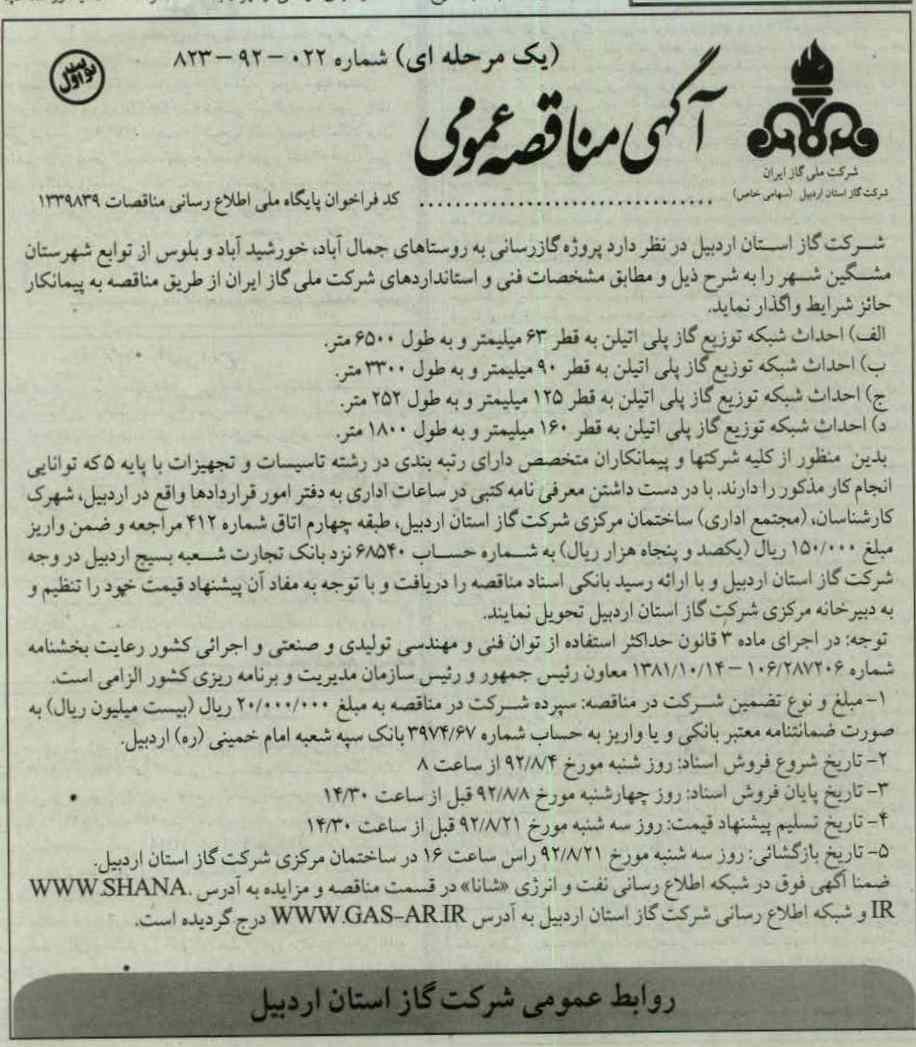 (یک مرحله ای) شماره ۰۲۲ – ۹۲ – ۸۲۳
نوبت اول
آگهی مناقصه عمومی
شرکت ملی گاز ایران
شرکت گاز استان اردبیل (سهامی خاص)
کد فراخوان پایگاه ملی اطلاع رسانی مناقصات ۱۳۳۹۸۳۹
شرکت گاز استان اردبیل در نظر دارد پروژه گازرسانی به روستاهای جمال آباد، خورشید آباد و بلوس از توابع شهرستان
مشگین شهر را به شرح ذیل و مطابق مشخصات فنی و استانداردهای شرکت ملی گاز ایران از طریق مناقصه به پیمانکار
حائز شرایط واگذار نماید.
الف) احداث شبکه توزیع گاز پلی اتیلن به قطر ۶۳ میلیمتر و به طول ۶۵۰۰ متر.
ب) احداث شبکه توزیع گاز پلی اتیلن به قطر ۹۰ میلیمتر و به طول ۳۳۰۰ متر.
ج) احداث شبکه توزیع گاز پلی اتیلن به قطر ۱۲۵ میلیمتر و به طول ۲۵۲ متر.
د) احداث شبکه توزیع گاز پلی اتیلن به قطر ۱۶۰ میلیمتر و به طول ۱۸۰۰ متر.
بدین منظور از کلیه شرکتها و پیمانکاران متخصص دارای رتبه بندی در رشته تاسیسات و تجهیزات با پایه ۵ که توانایی
انجام کار مذکور را دارند. با در دست داشتن معرفی نامه کتبی در ساعات اداری به دفتر امور قراردادها واقع در اردبیل، شهرک
کارشناسان، (مجتمع اداری) ساختمان مرکزی شرکت گاز استان اردبیل، طبقه چهارم اتاق شماره ۴۱۲ مراجعه و ضمن واریز
مبلغ ۱۵۰/۰۰۰ ریال (یکصد و پنجاه هزار ریال) به شماره حساب ۶۸۵۴۰ نزد بانک تجارت شعبه بسیج اردبیل در وجه
شرکت گاز استان اردبیل و با ارائه رسید بانکی اسناد مناقصه را دریافت و با توجه به مفاد آن پیشنهاد قیمت خود را تنظیم و
به دبیرخانه مرکزی شرکت گاز استان اردبیل تحویل نمایند.
توجه: در اجرای ماده ۳ قانون حداکثر استفاده از توان فنی و مهندسی تولیدی و صنعتی و اجرائی کشور رعایت بخشنامه
شماره ۱۰۶/۲۸۷۲۰۶ – ۱۳۸۱/۱۰/۱۴ معاون رئیس جمهور و رئیس سازمان مدیریت و برنامه ریزی کشور الزامی است.
۱– مبلغ و نوع تضمین شرکت در مناقصه: سپرده شرکت در مناقصه به مبلغ ۲۰/۰۰۰/۰۰۰ ریال (بیست میلیون ریال) به
صورت ضمانتنامه معتبر بانکی و یا واریز به حساب شماره ۳۹۷۴/۶۷ بانک سپه شعبه امام خمینی (ره) اردبیل.
۲– تاریخ شروع فروش اسناد: روز شنبه مورخ ۹۲/۸/۴ از ساعت ۸
۳– تاریخ پایان فروش اسناد: روز چهارشنبه مورخ ۹۲/۸/۸ قبل از ساعت ۱۴/۳۰
۴– تاریخ تسلیم پیشنهاد قیمت: روز سه شنبه مورخ ۹۲/۸/۲۱ قبل از ساعت ۱۴/۳۰
۵– تاریخ بازگشائی: روز سه شنبه مورخ ۹۲/۸/۲۱ راس ساعت ۱۶ در ساختمان مرکزی شرکت گاز استان اردبیل.
ضمنا آگهی فوق در شبکه اطلاع رسانی نفت و انرژی «شانا» در قسمت مناقصه و مزایده به آدرس WWW.SHANA.
IR و شبکه اطلاع رسانی شرکت گاز استان اردبیل به آدرس WWW.GAS-AR.IR درج گردیده است.
روابط عمومی شرکت گاز استان اردبیل